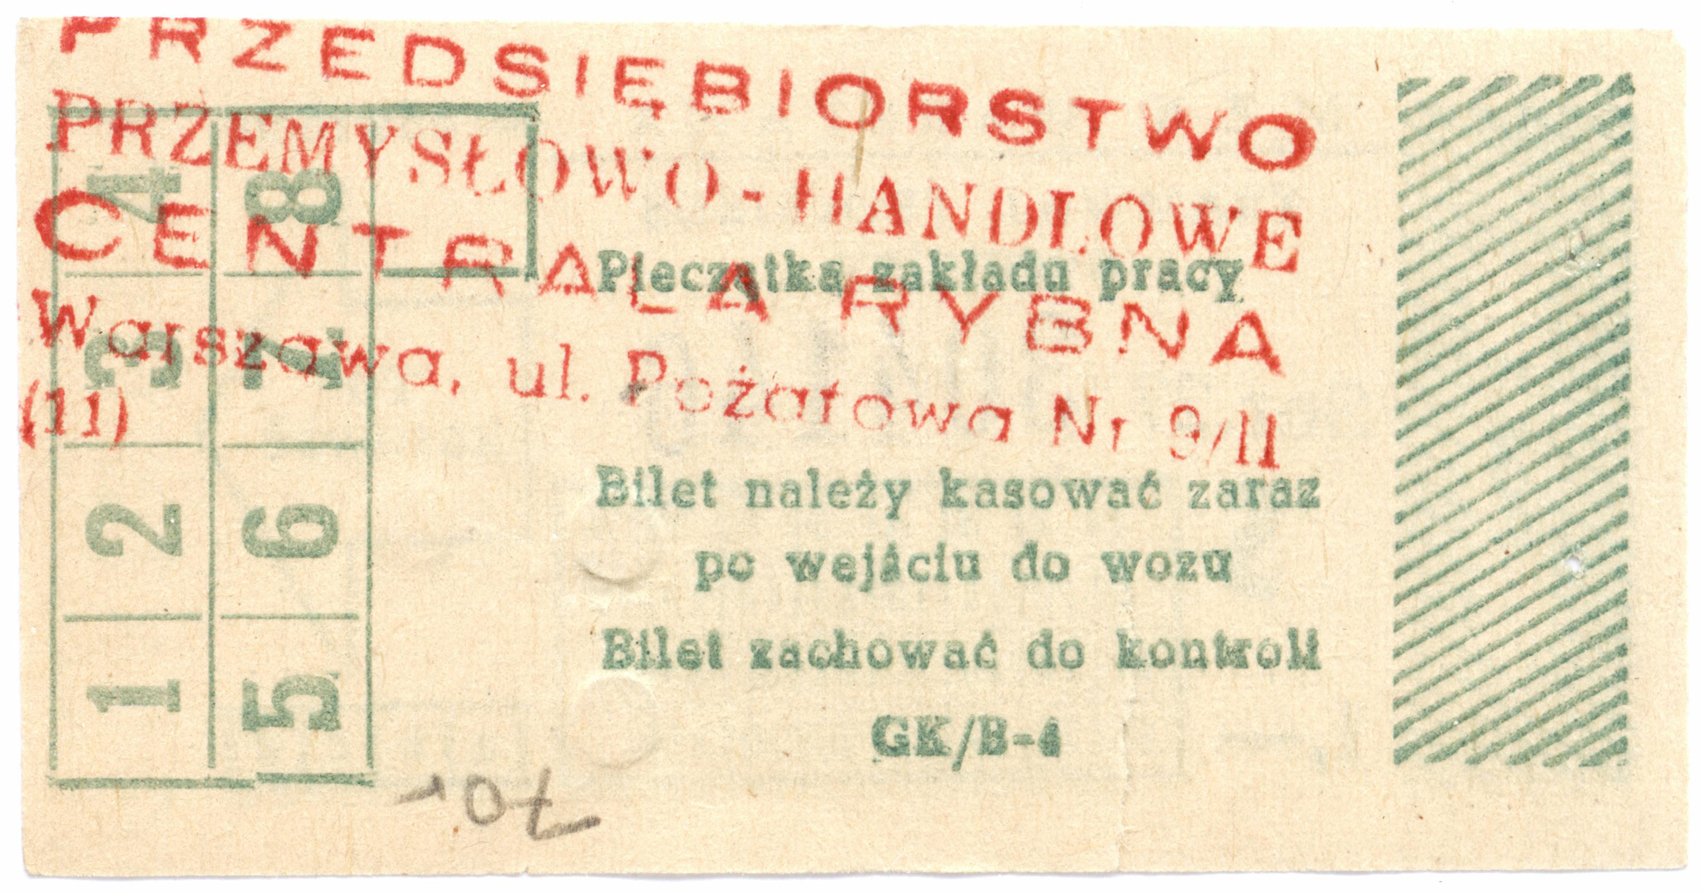 PRZEDSIĘBIORSTWO
PRZEMYSŁOWO-HANDLOWE
CENTRALA RYBNA
Warszawa, ul. Pożarowa Nr 9/11
(11)
4 8
3 7
2 6
1 5
Pieczątka zakładu pracy
Bilet należy kasować zaraz
po wejściu do wozu
Bilet zachować do kontroli
GK/B-4
70r